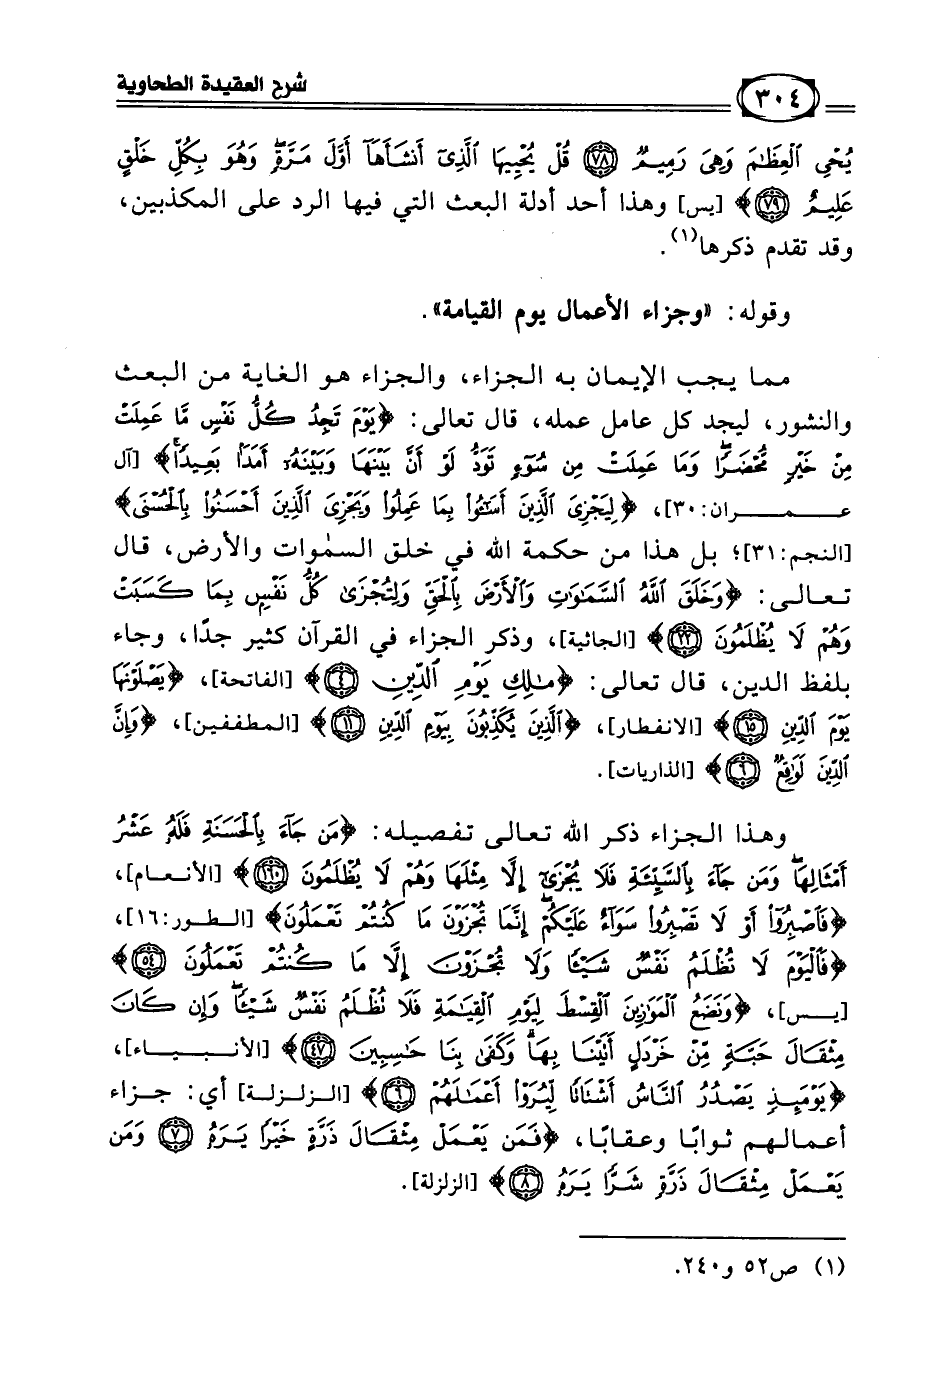 شرح العقيدة الطحاوية
٣٠٤
يُحْيِ ٱلْعِظَٰمَ وَهِيَ رَمِيمٌ ٧٨ قُلْ يُحْيِيهَا ٱلَّذِىٓ أَنشَأَهَآ أَوَّلَ مَرَّةٍۖ وَهُوَ بِكُلِّ خَلْقٍ
عَلِيمٌ ٧٩﴾ [يس] وهذا أحد أدلة البعث التي فيها الرد على المكذبين،
وقد تقدم ذكرها(١).
وقوله: «وجزاء الأعمال يوم القيامة».
مما يجب الإيمان به الجزاء، والجزاء هو الغاية من البعث
والنشور، ليجد كل عامل عمله، قال تعالى: ﴿يَوْمَ تَجِدُ كُلُّ نَفْسٍ مَّا عَمِلَتْ
مِنْ خَيْرٍ مُّحْضَرًا وَمَا عَمِلَتْ مِن سُوٓءٍ تَوَدُّ لَوْ أَنَّ بَيْنَهَا وَبَيْنَهُۥٓ أَمَدًۢا بَعِيدًاۗ﴾ [آل
عـمـران:٣٠]، ﴿لِيَجْزِىَ ٱلَّذِينَ أَسَٰٓـُٔوا۟ بِمَا عَمِلُوا۟ وَيَجْزِىَ ٱلَّذِينَ أَحْسَنُوا۟ بِٱلْحُسْنَى﴾
[النجم:٣١]؛ بل هذا من حكمة الله في خلق السمٰوات والأرض، قال
تعالى: ﴿وَخَلَقَ ٱللَّهُ ٱلسَّمَٰوَٰتِ وَٱلْأَرْضَ بِٱلْحَقِّ وَلِتُجْزَىٰ كُلُّ نَفْسٍۭ بِمَا كَسَبَتْ
وَهُمْ لَا يُظْلَمُونَ ٢٢﴾ [الجاثية]، وذكر الجزاء في القرآن كثير جدًّا، وجاء
بلفظ الدين، قال تعالى: ﴿مَٰلِكِ يَوْمِ ٱلدِّينِ ٤﴾ [الفاتحة]، ﴿يَصْلَوْنَهَا
يَوْمَ ٱلدِّينِ ١٥﴾ [الانفطار]، ﴿ٱلَّذِينَ يُكَذِّبُونَ بِيَوْمِ ٱلدِّينِ ١١﴾ [المطففين]، ﴿وَإِنَّ
ٱلدِّينَ لَوَٰقِعٌ ٦﴾ [الذاريات].
وهذا الجزاء ذكر الله تعالى تفصيله: ﴿مَن جَآءَ بِٱلْحَسَنَةِ فَلَهُۥ عَشْرُ
أَمْثَالِهَاۖ وَمَن جَآءَ بِٱلسَّيِّئَةِ فَلَا يُجْزَىٰٓ إِلَّا مِثْلَهَا وَهُمْ لَا يُظْلَمُونَ ١٦٠﴾ [الأنعام]،
﴿فَٱصْبِرُوٓا۟ أَوْ لَا تَصْبِرُوا۟ سَوَآءٌ عَلَيْكُمْۖ إِنَّمَا تُجْزَوْنَ مَا كُنتُمْ تَعْمَلُونَ﴾ [الطور:١٦]،
﴿فَٱلْيَوْمَ لَا تُظْلَمُ نَفْسٌ شَيْـًٔا وَلَا تُجْزَوْنَ إِلَّا مَا كُنتُمْ تَعْمَلُونَ ٥٤﴾
[يس]، ﴿وَنَضَعُ ٱلْمَوَٰزِينَ ٱلْقِسْطَ لِيَوْمِ ٱلْقِيَٰمَةِ فَلَا تُظْلَمُ نَفْسٌ شَيْـًٔاۖ وَإِن كَانَ
مِثْقَالَ حَبَّةٍ مِّنْ خَرْدَلٍ أَتَيْنَا بِهَاۗ وَكَفَىٰ بِنَا حَٰسِبِينَ ٤٧﴾ [الأنبياء]،
﴿يَوْمَئِذٍ يَصْدُرُ ٱلنَّاسُ أَشْتَاتًا لِّيُرَوْا۟ أَعْمَٰلَهُمْ ٦﴾ [الزلزلة] أي: جزاء
أعمالهم ثوابًا وعقابًا، ﴿فَمَن يَعْمَلْ مِثْقَالَ ذَرَّةٍ خَيْرًا يَرَهُۥ ٧ وَمَن
يَعْمَلْ مِثْقَالَ ذَرَّةٍ شَرًّا يَرَهُۥ ٨﴾ [الزلزلة].
(١) ص٥٢ و٢٤٠.